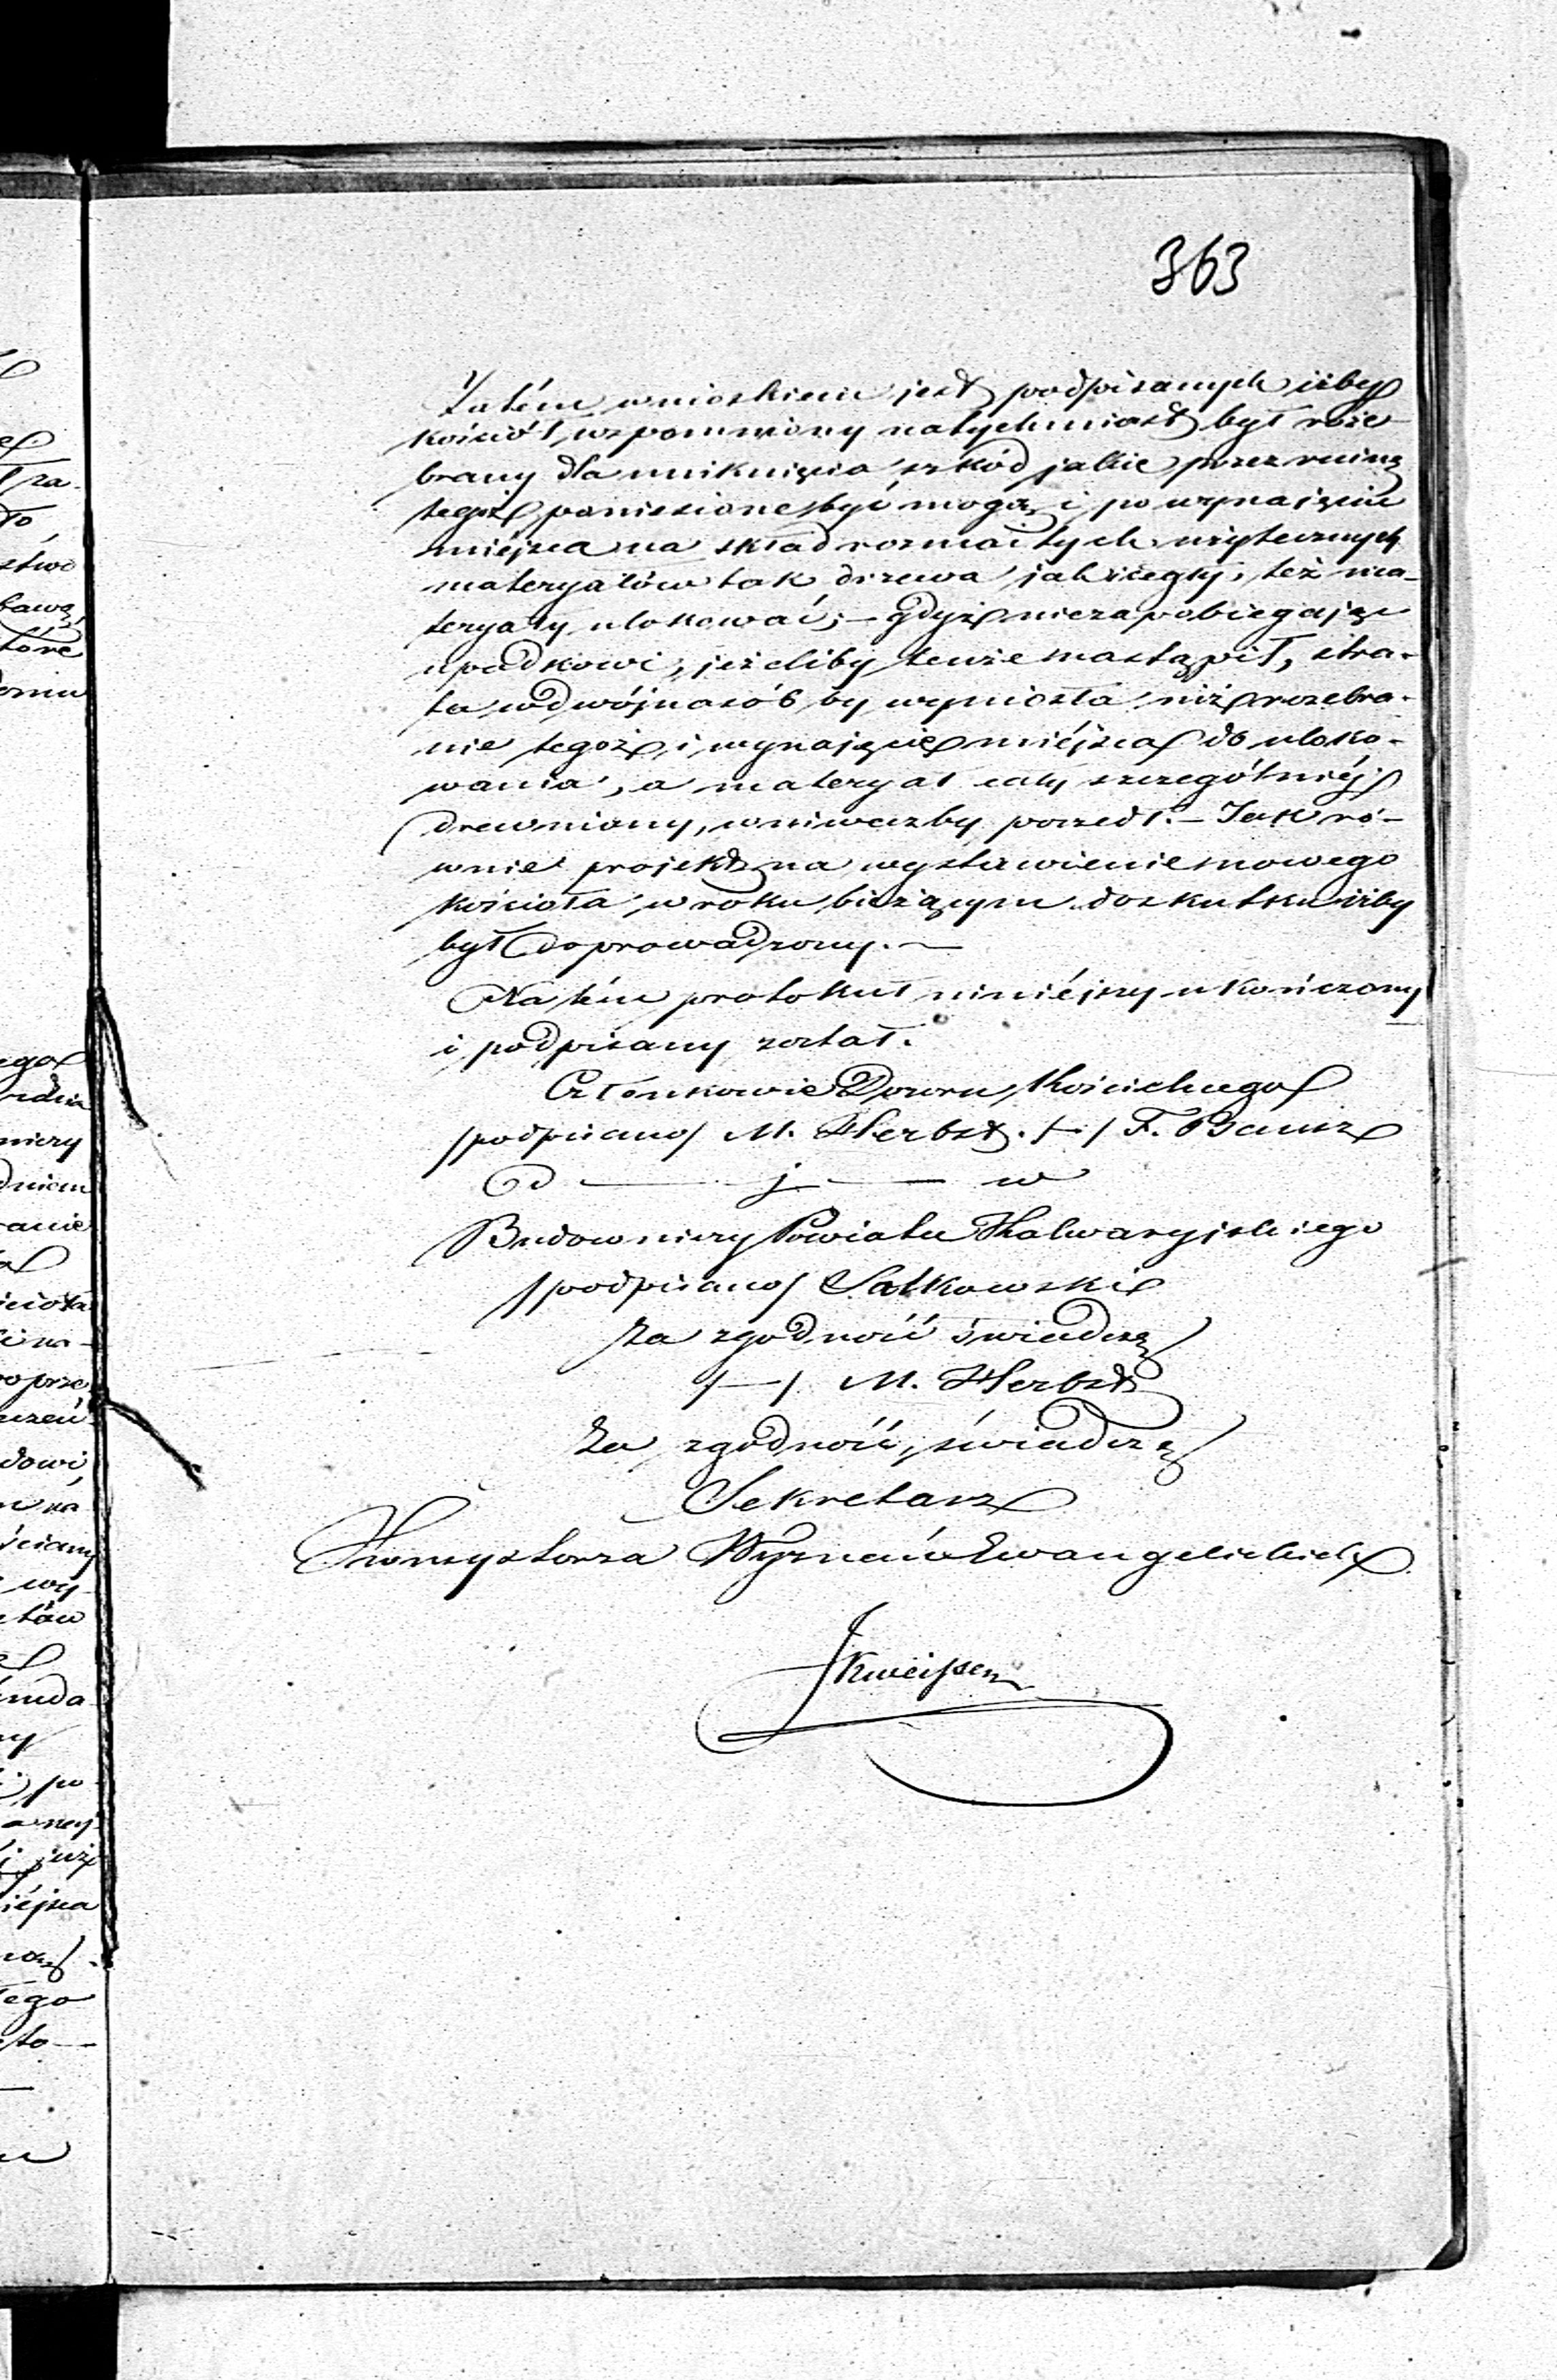 363
Zatém wnioskiem jest podpisanych iżby
kościół wspomniony natychmiast był roze-
brany dla uniknięcia szkód jakie przez ruinę
tegoż poniesione być mogą i po wynajęciu
miéjsca na skład rozmaitych użytecznych
materyałów tak drzewa jak i cegły, też ma-
teryały ulokować; – gdyż niezapobiegając
upadkowi, jeżeliby tenże nastąpił, stra-
ta w dwójnasób by wyniosła niż rozebra-
nie tegoż i wynajęcie miéjsca do uloko-
wania, a materyał cały szczególniéj
drewniany, wniwecz by poszedł. – Jak ró-
wnie projekt na wystawienie nowego
kościoła w roku bieżącym do skutku iżby
był doprowadzony. —
Na tém protokuł niniéjszy ukończony
i podpisany został.
Członkowie Dozoru Kościelnego
/podpisano/ M. Herbst. /-/ F.
Budowniczy Powiatu Kalwaryjskiego
/podpisano/ Satkowski
Za zgodność świadczę
/—/ M. Herbst
Za zgodność świadczę
Sekretarz
Konsystorza Wyznań Ewangelickich